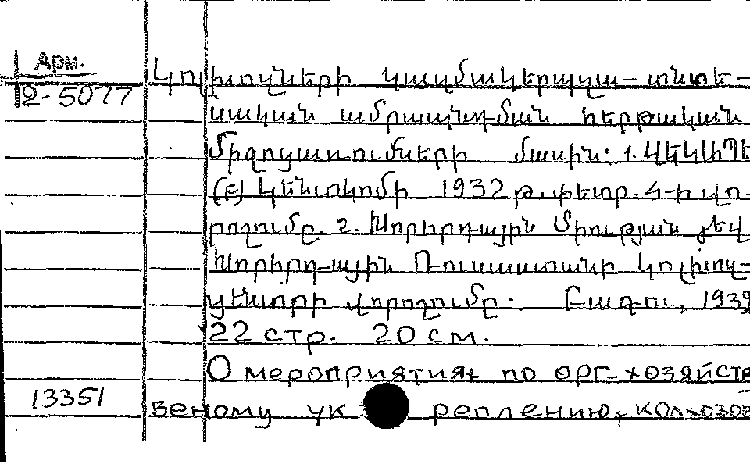 Арм.
2-5077
Կոլխոզների կազմակերպչա-տնտե-
սական ամրապնդման հերթական
միջոցառումների մասին: 1. ՎԿԿ/բ/Պ
Կենտկոմի 1932 թ. փետր. 4-ի վո-
րոշումը. 2. Խորհրդային Միության յեվ
Խորհրդային Ռուսաստանի Կոլխոզ-
ցենտրի վորոշումը. Բագու, 1932
22 стр. 20 см.
О мероприятиях по орг-хозяйств
13351
веному ук реплению колхозов